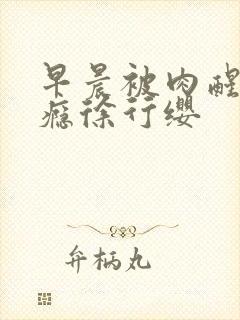 早晨被肉醒
瘾徐行缨
弁柄丸